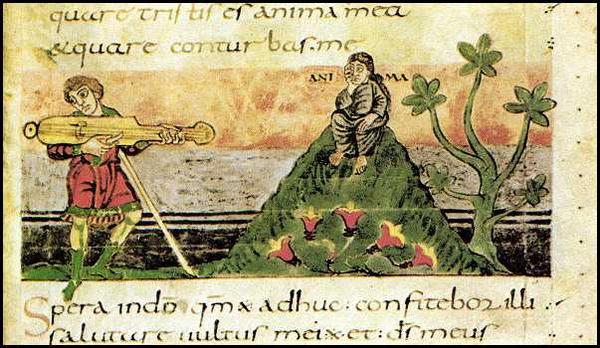 quare tristis es anima mea
& quare conturbas me
ANI MA
Spera indō qm̄ & adhuc : confitebor illi
salutare uultus mei et : d̄s meus